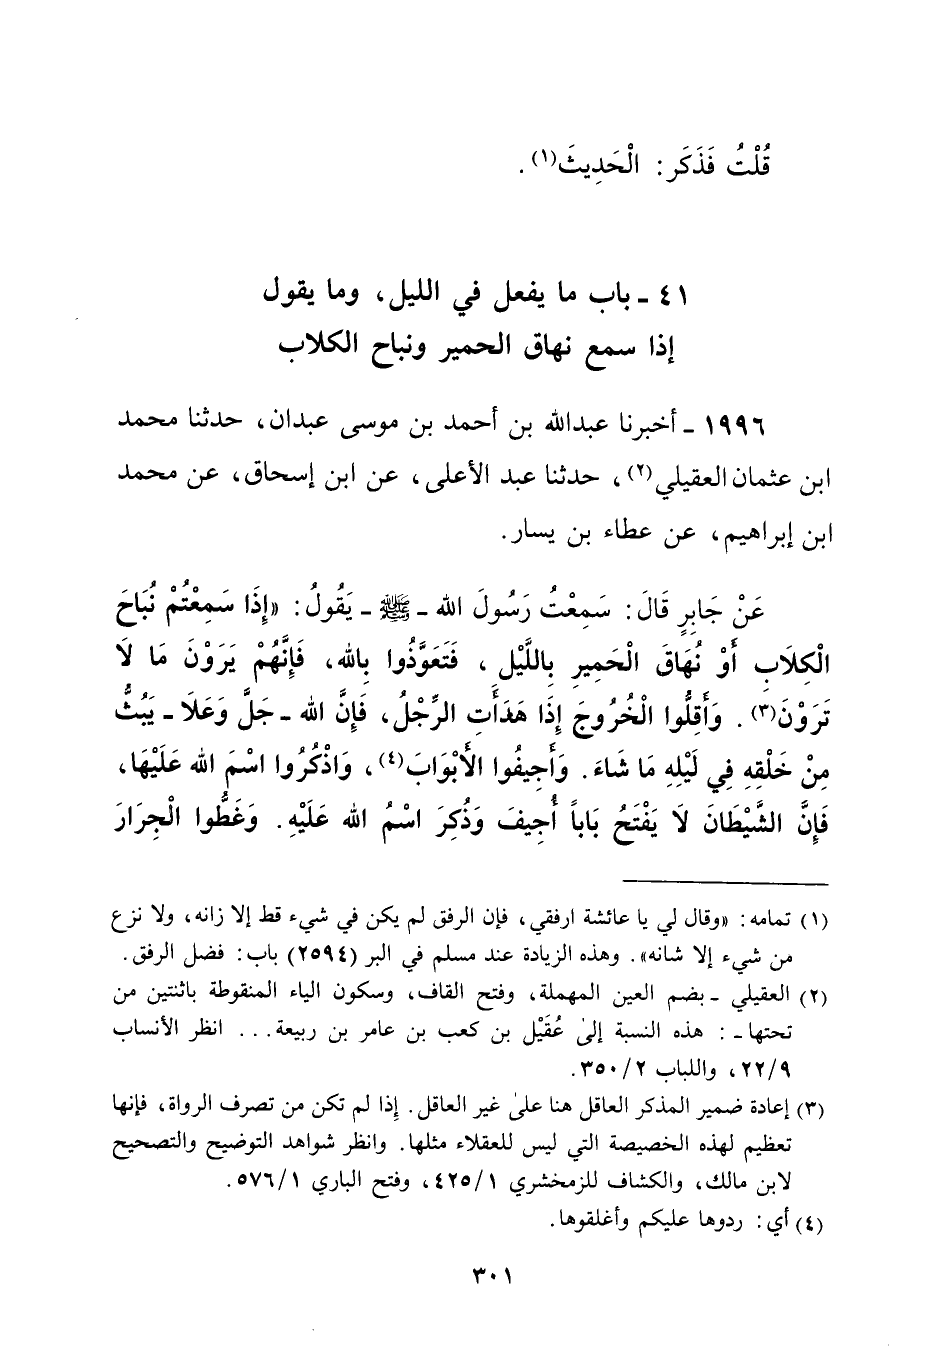 قُلْتُ فَذَكَر: الْحَدِيثَ(١).
٤١ ـ باب ما يفعل في الليل، وما يقول
إذا سمع نهاق الحمير ونباح الكلاب
١٩٩٦ ـ أخبرنا عبدالله بن أحمد بن موسى عبدان، حدثنا محمد
ابن عثمان العقيلي(٢)، حدثنا عبد الأعلى، عن ابن إسحاق، عن محمد
ابن إبراهيم، عن عطاء بن يسار.
عَنْ جَابِرٍ قَالَ: سَمِعْتُ رَسُولَ الله ـ ﷺ ـ يَقُولُ: «إِذَا سَمِعْتُمْ نُبَاحَ
الْكِلَابِ أَوْ نُهَاقَ الْحَمِيرِ بِاللَّيْلِ، فَتَعَوَّذُوا بِالله، فَإِنَّهُمْ يَرَوْنَ مَا لَا
تَرَوْنَ(٣). وَأَقِلُّوا الْخُرُوجَ إِذَا هَدَأَتِ الرِّجْلُ، فَإِنَّ الله ـ جَلَّ وَعَلَا ـ يَبُثُّ
مِنْ خَلْقِهِ فِي لَيْلِهِ مَا شَاءَ. وَأَجِيفُوا الأَبْوَابَ(٤)، وَاذْكُرُوا اسْمَ الله عَلَيْهَا،
فَإِنَّ الشَّيْطَانَ لَا يَفْتَحُ بَاباً أُجِيفَ وَذُكِرَ اسْمُ الله عَلَيْهِ. وَغَطُّوا الْجِرَارَ
(١) تمامه: «وقال لي يا عائشة ارفقي، فإن الرفق لم يكن في شيء قط إلا زانه، ولا نزع
من شيء إلا شانه». وهذه الزيادة عند مسلم في البر (٢٥٩٤) باب: فضل الرفق.
(٢) العقيلي ـ بضم العين المهملة، وفتح القاف، وسكون الياء المنقوطة باثنتين من
تحتها ـ: هذه النسبة إلى عُقَيْل بن كعب بن عامر بن ربيعة... انظر الأنساب
٢٢/٩، واللباب ٣٥٠/٢.
(٣) إعادة ضمير المذكر العاقل هنا على غير العاقل. إذا لم تكن من تصرف الرواة، فإنها
تعظيم لهذه الخصيصة التي ليس للعقلاء مثلها. وانظر شواهد التوضيح والتصحيح
لابن مالك، والكشاف للزمخشري ٤٢٥/١، وفتح الباري ٥٧٦/١.
(٤) أي: ردوها عليكم وأغلقوها.
٣٠١